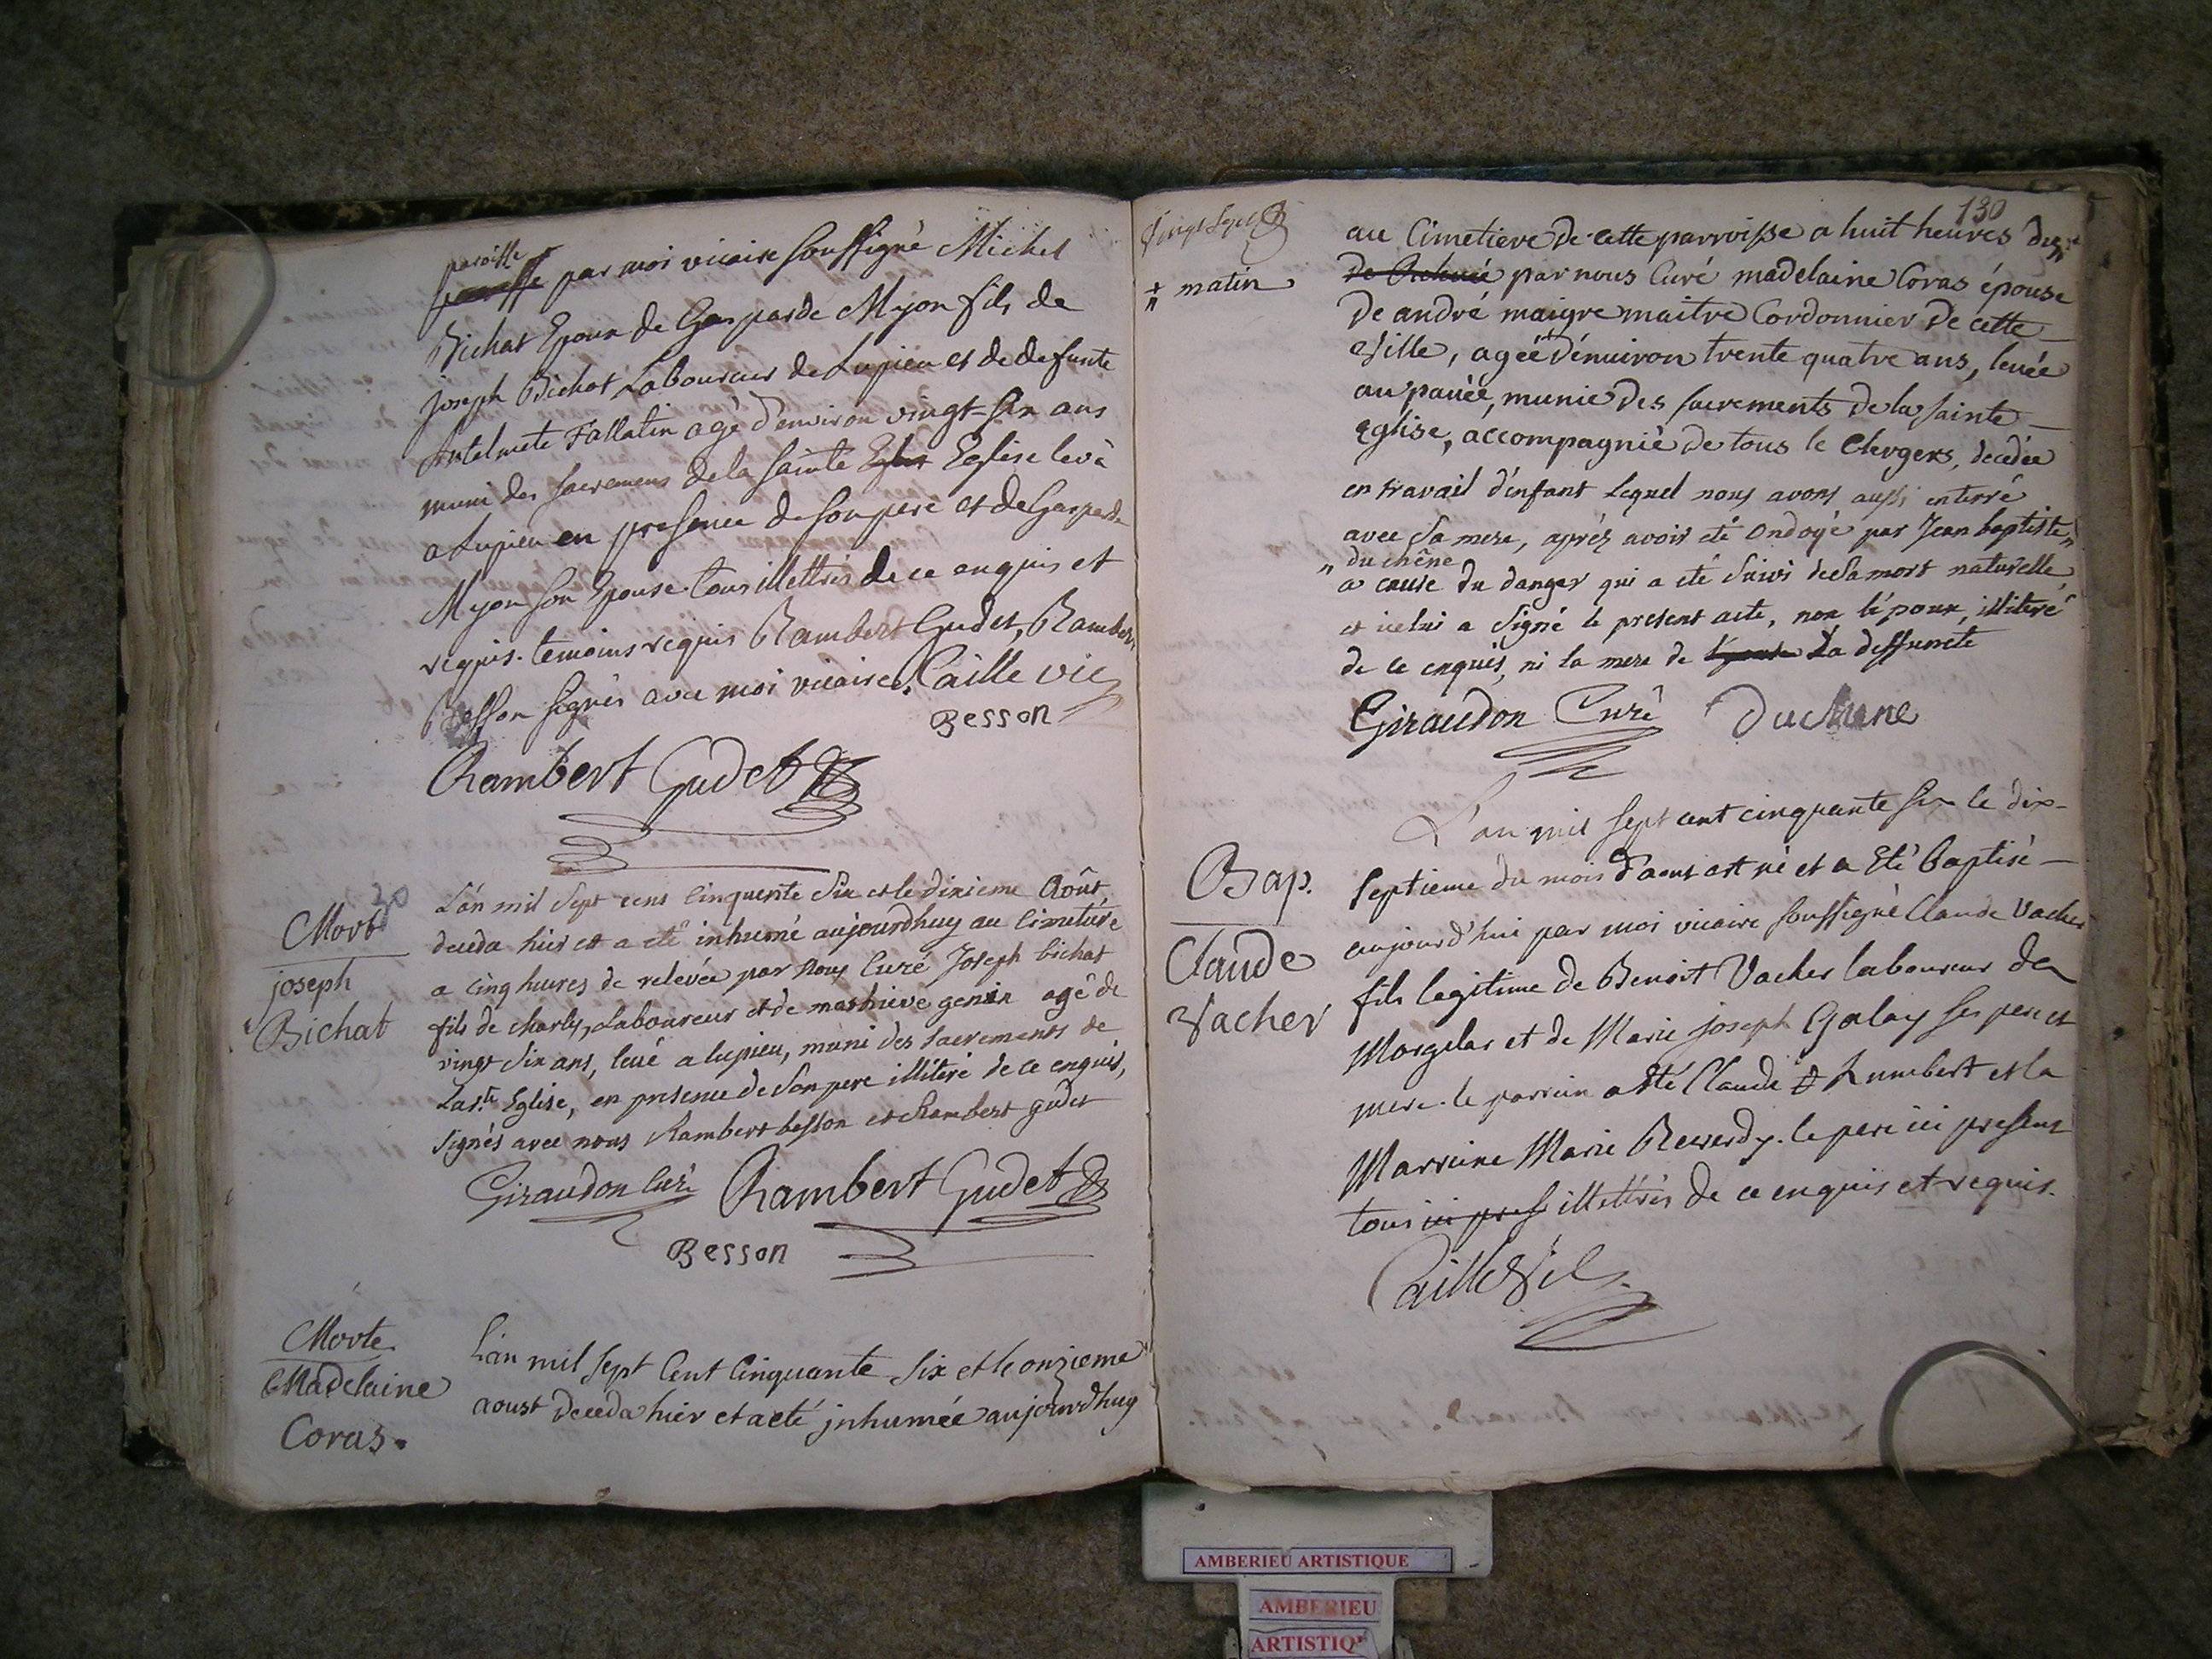 paroisse
paroisse par moi vicaire soussigné Michel
Bichat Epoux de Gasparde Myon fils de
joseph Bichat Laboureur de Lupieu et de defunte
Antelmete Fallatin agé d'environ vingt-six ans
muni des sacremens de la sainte Eglise Eglise levé
a Lupieu en presence de son pere et de Gasparde
Myon son Epouse tous illettrés de ce enquis et
requis. temoins requis Rambert Gudet, Rambert
Besson signés avec moi vicaire. Caille vic
Besson
Rambert Gudet
30
Mort
joseph
Bichat
L'an mil sept cens cinquente six et le dixieme Août
deceda hier et a eté inhumé aujourdhuy au cimetiére
a cinq heures de relevée par nous Curé Joseph bichat
fils de charly, Laboureur et de mathieve genin agé de
vingt six ans, levé a lupieu, muni des sacrements de
La ste Eglise, en presence de son pere illiteré de ce enquis,
signés avec nous Rambert besson et Rambert gudet
Giraudon Curé Rambert Gudet
Besson
Morte
Madelaine
Coras.
L'an mil sept Cent Cinquante six et le onzieme
aoust deceda hier et a eté jnhumée aujourdhuy
130
matin
au Cimetiere de cette parroisse a huit heures du
par nous Curé madelaine Coras épouse
De andré maigre maitre Cordonnier De cette
ville, agée d'énuiron trente quatre ans, levée
au pavée, munie des sacrements de la sainte
eglise, accompagnié de tous le Clergers, decedée
en travail d'enfant Lequel nous avons aussi enterré
avec sa mere, aprés avoir eté ondoyé par Jean baptiste
" du chêne
a cause du danger qui a eté suivi de sa mort naturelle
et icelui a signé le present acte, non l'époux, illiteré
de ce enquis, ni la mere de l'epouse La deffuncte
Giraudon Curé Duchene
Bap.
Claude
Vacher
L'an mil sept cent cinquante six le dix-
septieme du mois d'aout est né et a Eté baptisé
aujourd'hui par moi vicaire soussigné Claude Vacher
fils legitime de Benoit Vacher laboureur de
Morgelas et de Marie joseph Galay ses pere et
mere. le parrein a été Claude Humbert et la
Marreine Marie Reverdy. le pere ici present
tous ici pres illettrés de ce enquis et requis.
Caille Vic
AMBERIEU ARTISTIQUE
AMBERIEU
ARTISTIQ